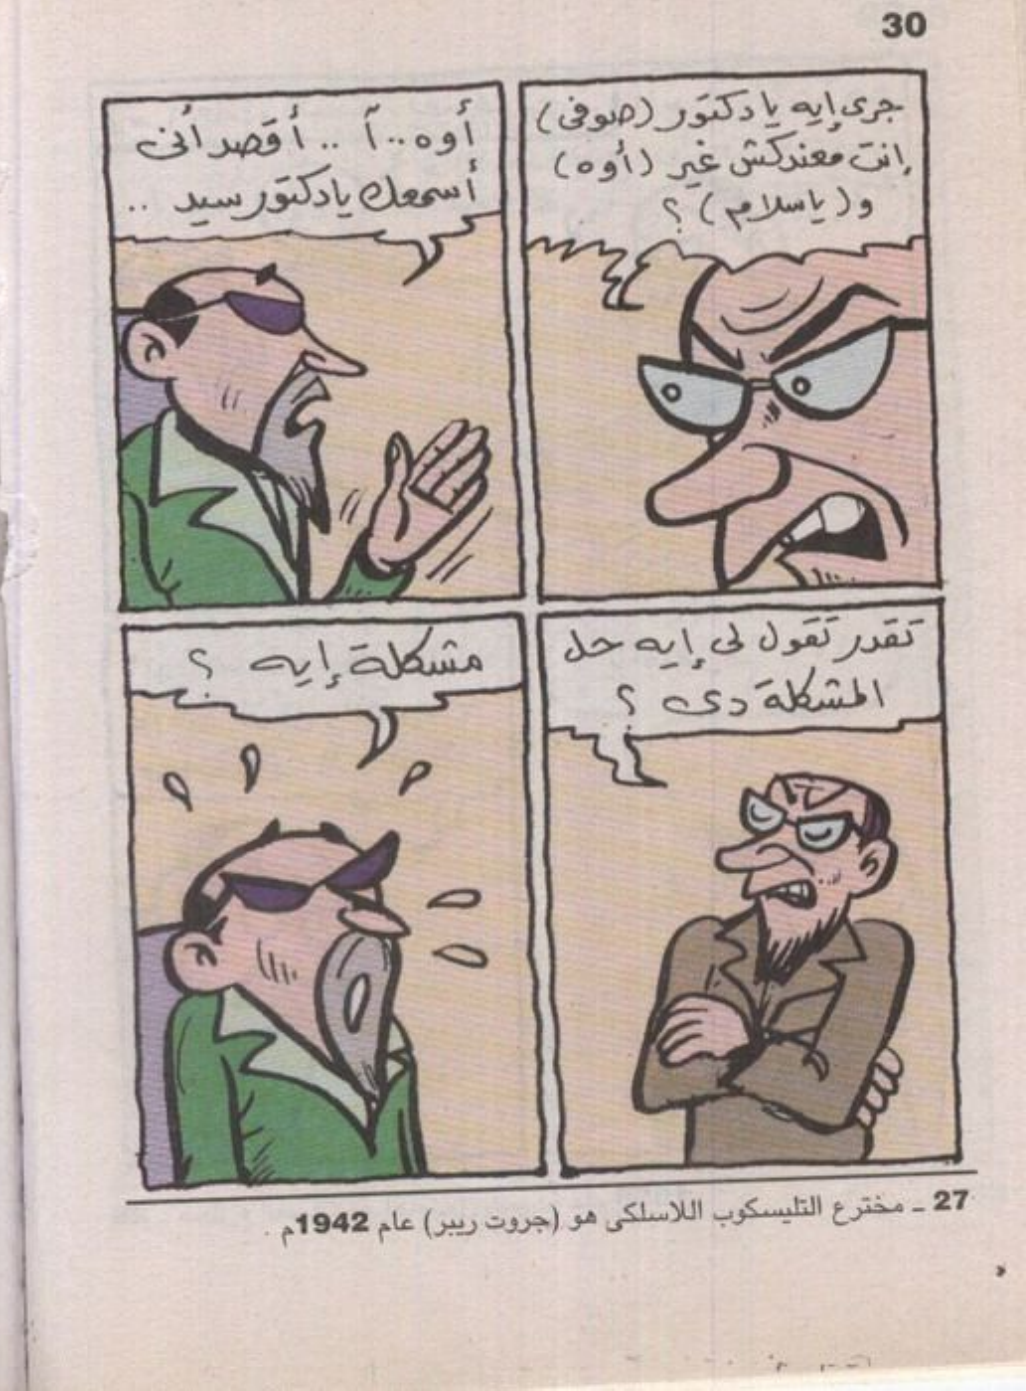 30
جرى إيه يا دكتور (صوفى)
إنت معندكش غير (أوه)
و(ياسلام) ؟
أوه..آ .. أقصد أنى
أسمعك يا دكتور سيد ..
تقدر تقول لى إيه حل
المشكلة دى ؟
مشكلة إيه ؟
27 ـ مخترع التليسكوب اللاسلكى هو (جروت ريبر) عام 1942م .